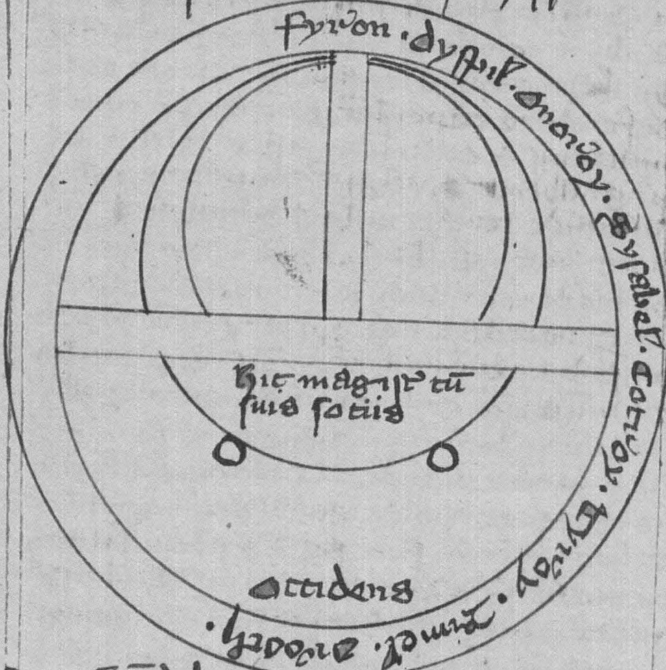 fyron · dyspil · onoroy · Sysabel · Cotroy · Tyroy · Rimel · Orooth ·
hic magistr cū
suis sociis
Occidens